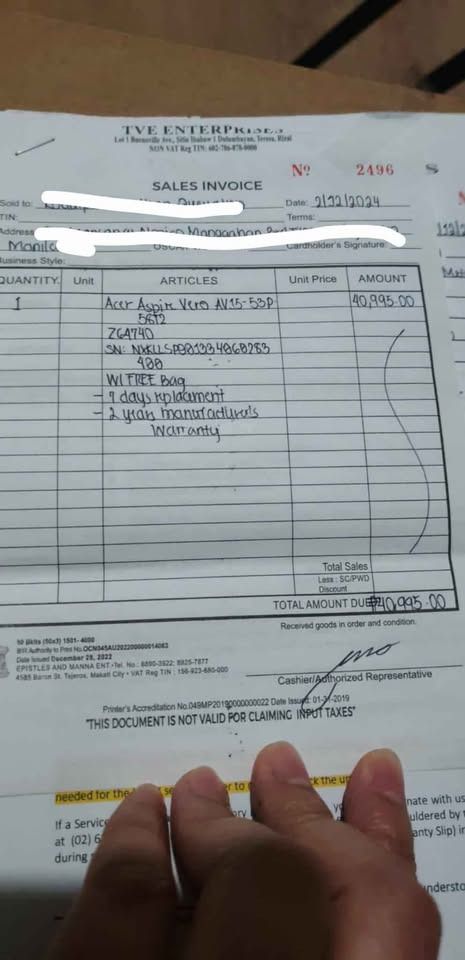 TVE ENTERPRISES
Lot 1 Burnsville Ave., Sitio Ibabaw 1 Dulumbayan, Teresa, Rizal
NON VAT Reg TIN: 602-786-878-0000
Nº 2496
SALES INVOICE
Sold to:
Date: 2/22/2024
TIN:
Terms:
Address
Manila
Cardholder's Signature
Business Style:
QUANTITY Unit ARTICLES Unit Price AMOUNT
1 Acer Aspire Vero AV15-53P 40,995.00
5612
Z64740
SN: 
400
W/ FREE Bag
- 7 days replacement
- 2 years manufacturer's
Warranty
Total Sales
Less : SC/PWD
Discount
TOTAL AMOUNT DUE ₱40,995.00
Received goods in order and condition.
50 Bklts (50x3) 1501- 4000
BIR Authority to Print No.OCN045AU20220000014083
Date Issued December 28, 2022
EPISTLES AND MANNA ENT•Tel. No.: 8890-3922; 8825-7877
4585 Baron St. Tejeros, Makati City • VAT Reg TIN : 156-923-680-000
Cashier/Authorized Representative
Printer's Accreditation No.049MP20190000000022 Date Issued: 01-31-2019
"THIS DOCUMENT IS NOT VALID FOR CLAIMING INPUT TAXES"
needed for the
If a Service
at (02) 6
during